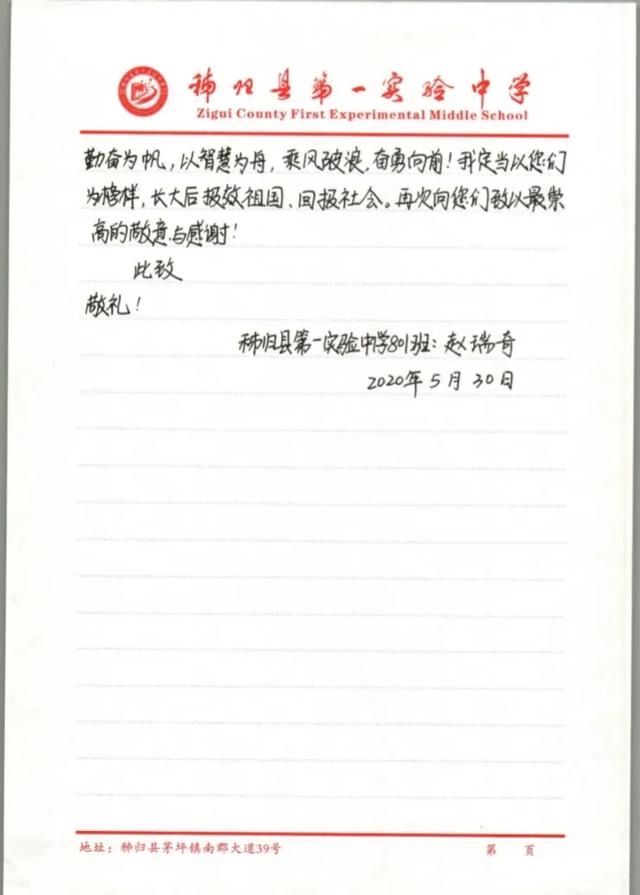 秭归县第一实验中学
Zigui County First Experimental Middle School
勤奋为帆，以智慧为舟，乘风破浪，奋勇向前！我定当以您们
为榜样，长大后报效祖国、回报社会。再次向您们致以最崇
高的敬意与感谢！
此致
敬礼！
秭归县第一实验中学801班：赵瑞奇
2020年5月30日
地址：秭归县茅坪镇南郡大道39号
第 页